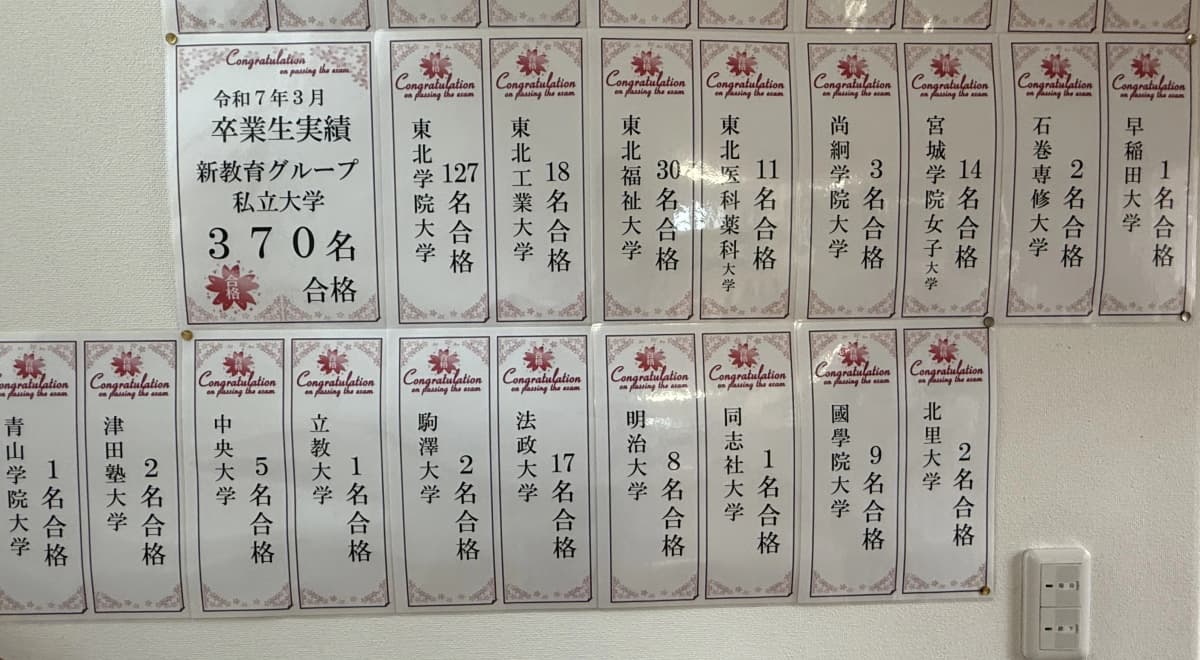 Congratulation
on passing the exam
令和7年3月
卒業生実績
新教育グループ
私立大学
370名
合格
合格
Congratulation
on passing the exam
東北学院大学
127名合格
Congratulation
on passing the exam
東北工業大学
18名合格
Congratulation
on passing the exam
東北福祉大学
30名合格
Congratulation
on passing the exam
東北医科薬科大学
11名合格
Congratulation
on passing the exam
尚絅学院大学
3名合格
Congratulation
on passing the exam
宮城学院女子大学
14名合格
Congratulation
on passing the exam
石巻専修大学
2名合格
Congratulation
on passing the exam
早稲田大学
1名合格
Congratulation
on passing the exam
青山学院大学
1名合格
Congratulation
on passing the exam
津田塾大学
2名合格
Congratulation
on passing the exam
中央大学
5名合格
Congratulation
on passing the exam
立教大学
1名合格
Congratulation
on passing the exam
駒澤大学
2名合格
Congratulation
on passing the exam
法政大学
17名合格
Congratulation
on passing the exam
明治大学
8名合格
Congratulation
on passing the exam
同志社大学
1名合格
Congratulation
on passing the exam
國學院大学
9名合格
Congratulation
on passing the exam
北里大学
2名合格